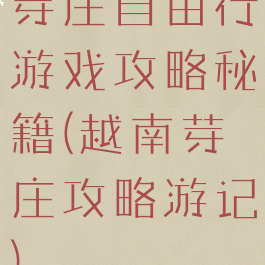 芽庄自由行
游戏攻略秘
籍(越南芽
庄攻略游记
)